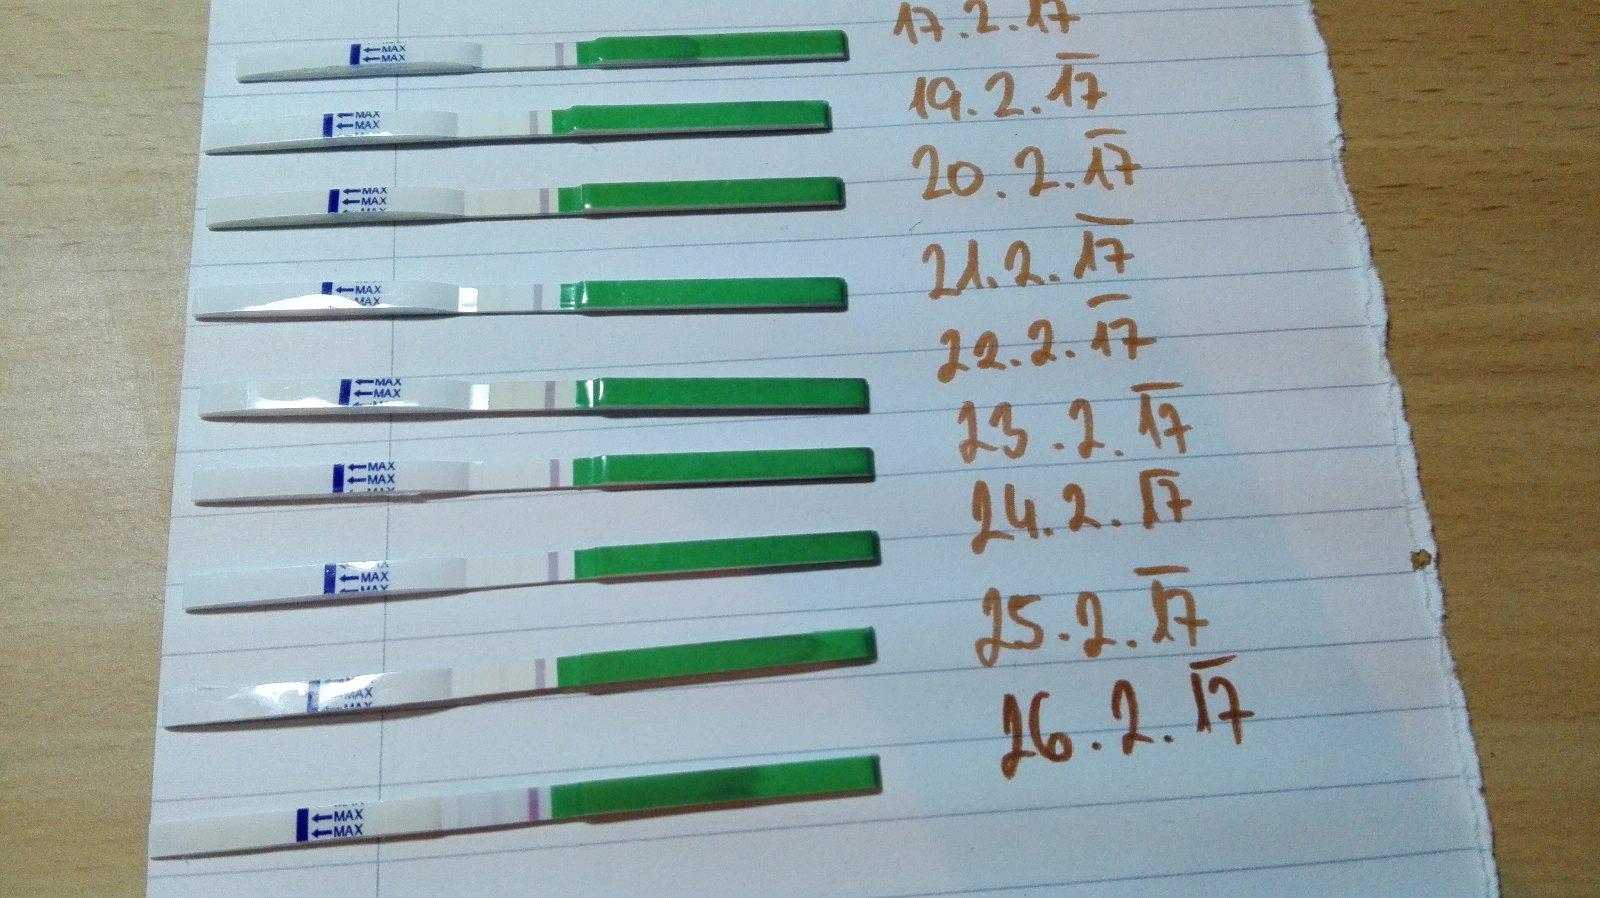 17.2.17
←MAX
←MAX
19.2.17
←MAX
←MAX
20.2.17
←MAX
←MAX
MAX
21.2.17
←MAX
MAX
22.2.17
←MAX
←MAX
23.2.17
←MAX
←MAX
MAX
24.2.17
←MAX
MAX
25.2.17
←MAX
MAX
26.2.17
←MAX
←MAX